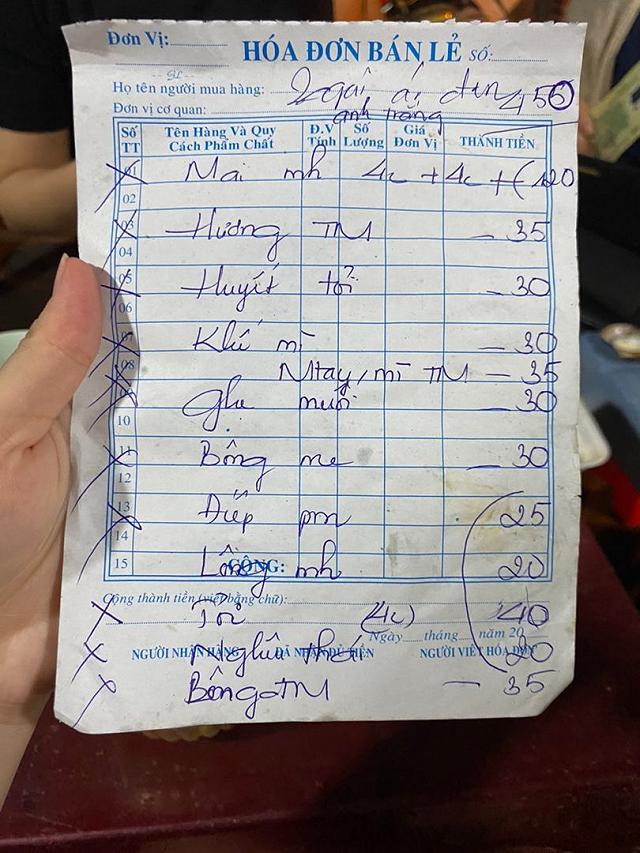 Đơn Vị:
HÓA ĐƠN BÁN LẺ Số:
Họ tên người mua hàng: 2 gái áo đen 450
Đơn vị cơ quan: anh trắng
Số TT Tên Hàng Và Quy Cách Phẩm Chất Đ.V Tính Số Lượng Giá Đơn Vị THÀNH TIỀN
01 Mai mh 4c + 4c + (120
02
03 Hương TM – 35
04
05 Huyết tỏi – 30
06
07 Khế mì – 30
08 Mtay / mì TM – 35
Ghẹ muối – 30
10
11 Bông me – 30
12
13 Điệp pm 25
14
15 Lông mh 20
CỘNG:
Cộng thành tiền (viết bằng chữ):
Tỏi (4c) 40
Ngày tháng năm 20
NGƯỜI NHẬN HÀNG ĐÃ NHẬN ĐỦ TIỀN NGƯỜI VIẾT HÓA ĐƠN
Nghêu thái 20
Bông TM – 35